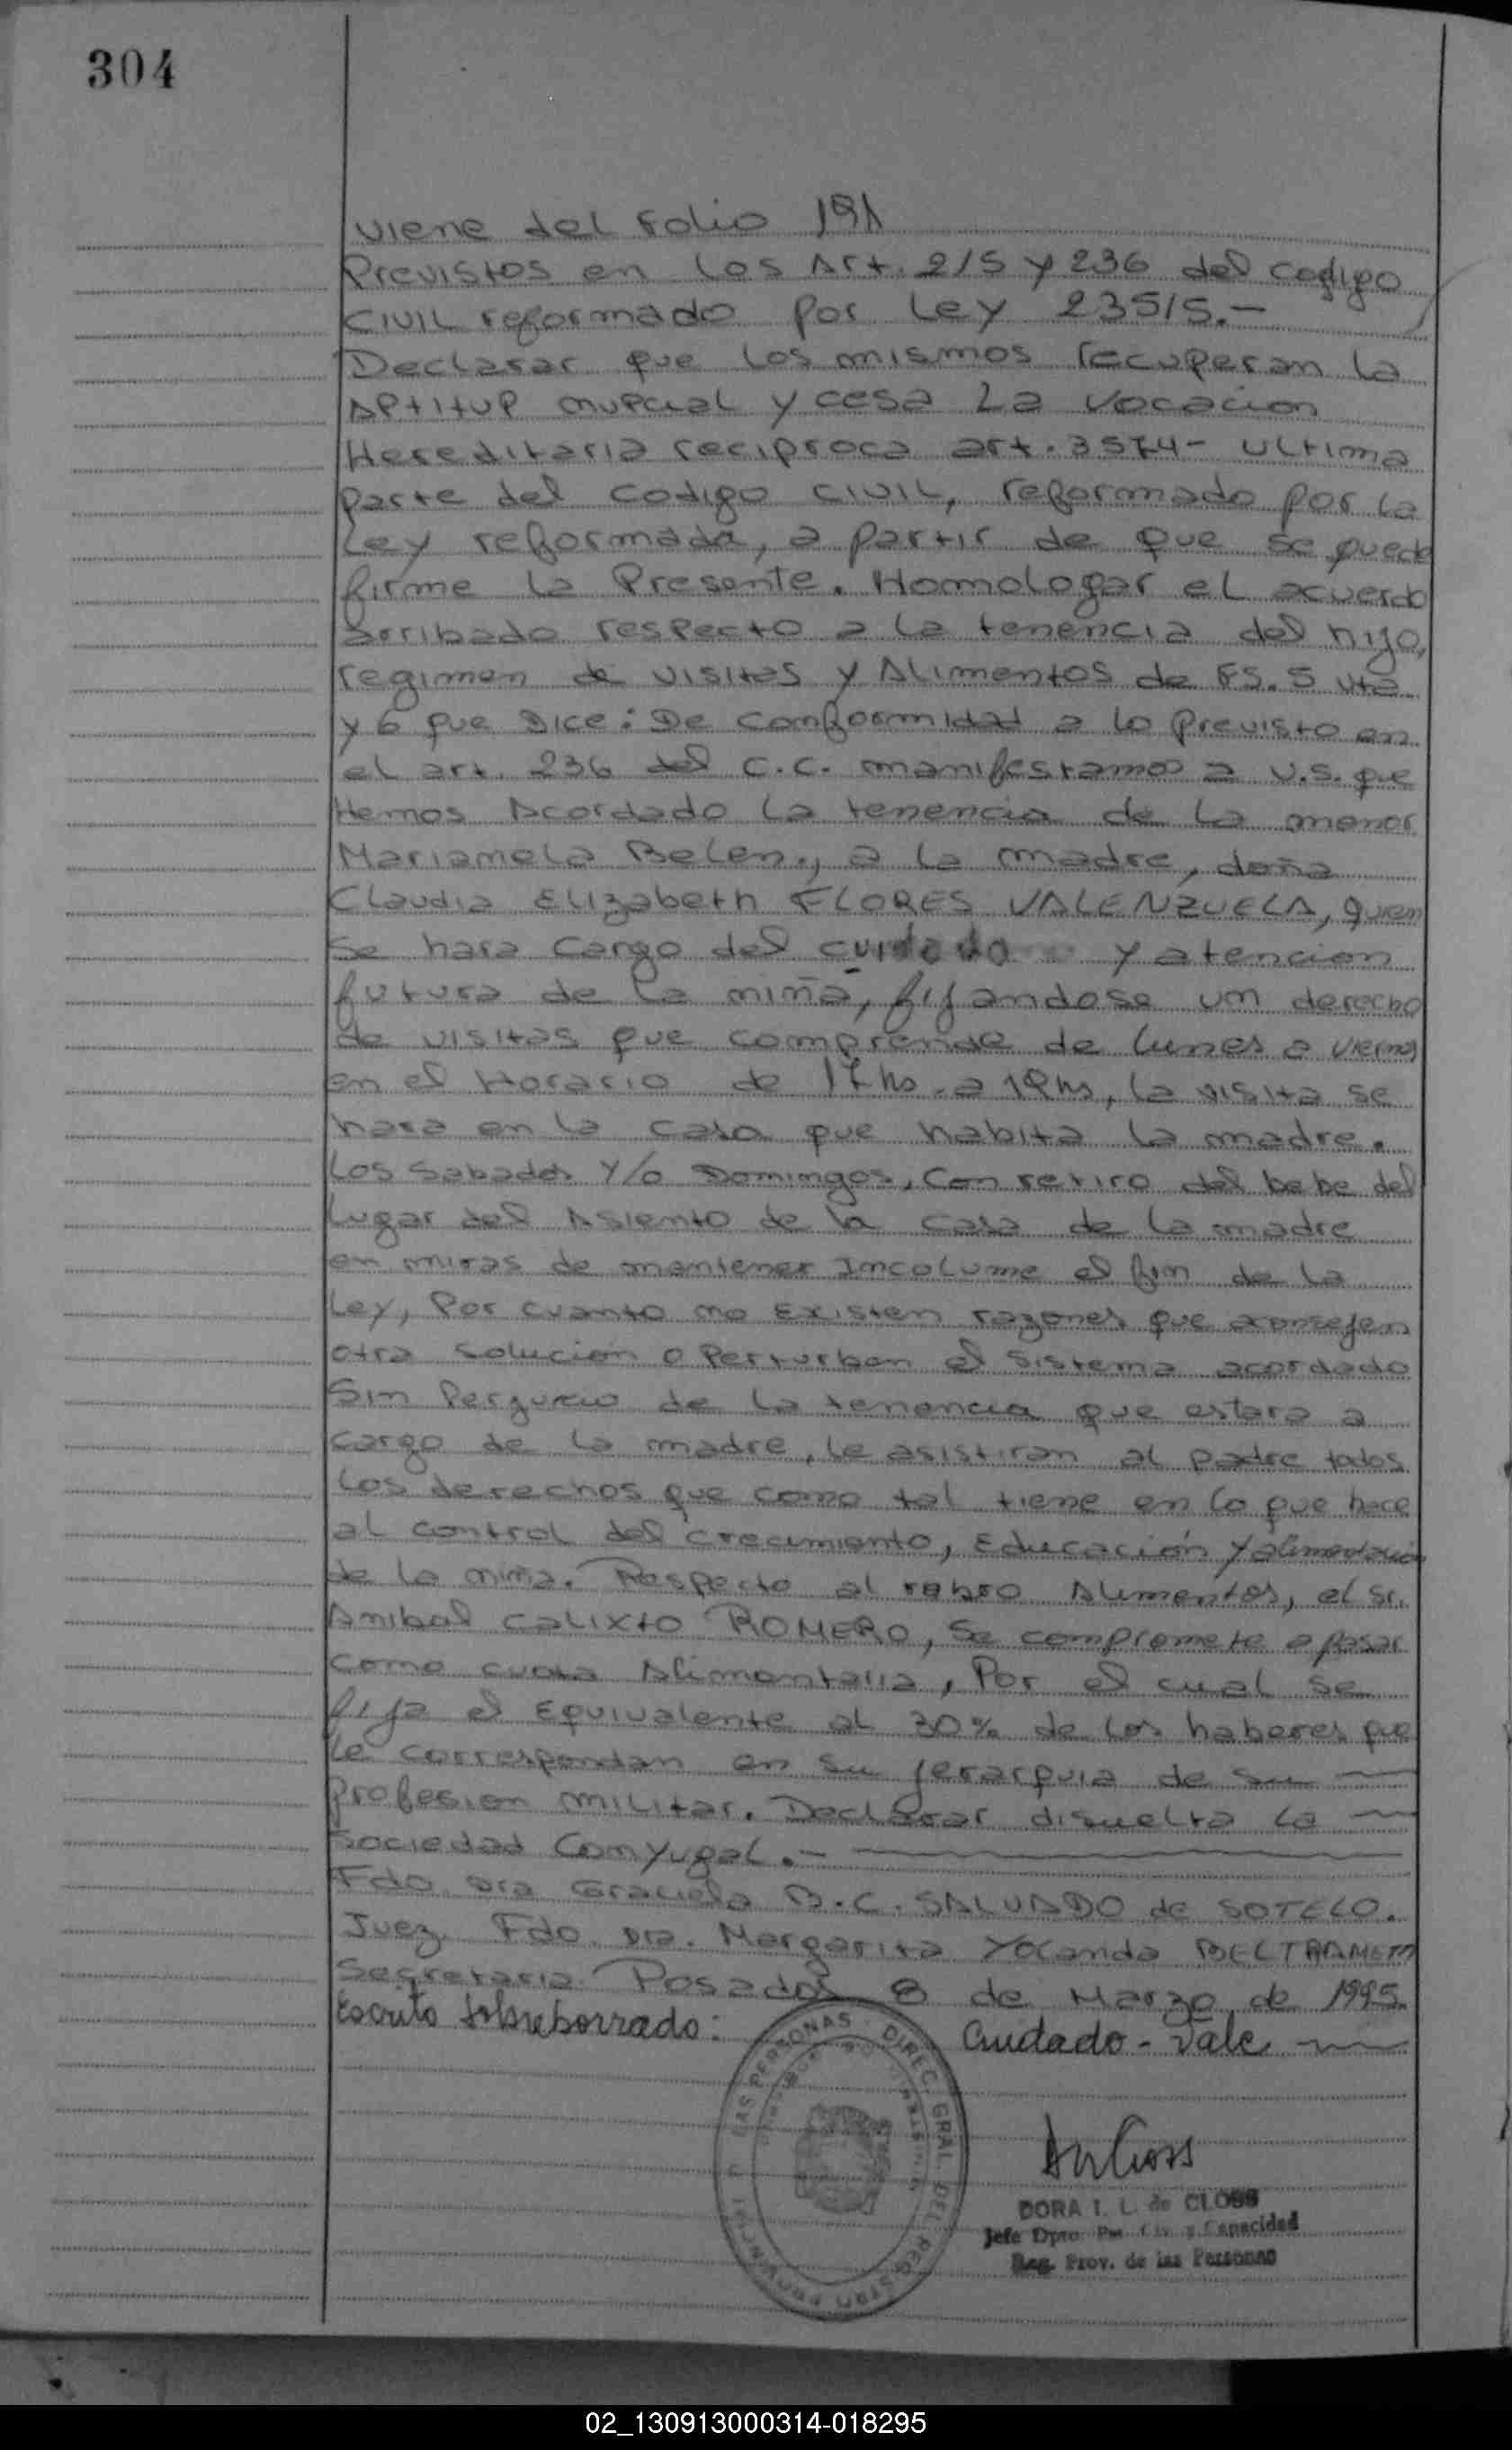 304
Viene del Folio 191
Previstos en los Art. 215 y 236 del codigo
Civil reformado por Ley 23515.-
Declarar que los mismos recuperan la
Aptitup nupcial y cesa La vocacion
Hereditaria reciproca art. 3574- ultima
parte del codigo civil, reformado por la
Ley reformada, a partir de que se quede
firme la Presente. Homologar el acuerdo
arribado respecto a la tenencia del hijo,
regimen de visitas y Alimentos de FS. 5 vta
y 6 que Dice: De conformidad a lo Previsto en
el art. 236 del C.C. manifestamos a V.S. que
Hemos Acordado la tenencia de la menor
Marianela Belen., a la madre, doña
Claudia Elizabeth FLORES VALENZUELA, quien
se hara cargo del cuidado y atencion
futura de la niña, fijandose un derecho
de visitas que comprende de lunes a viernes
en el Horario de 17 hs. a 19 hs, la visita se
hara en la casa que habita la madre.
Los Sabados Y/o Domingos, Con retiro del bebe del
lugar del Asiento de la casa de la madre
en miras de mantener Incolume el fin de la
Ley, Por cuanto no Existen razones que aconsejen
otra solucion o Perturben el sistema acordado
Sin Perjucio de la tenencia que estara a
cargo de la madre, le asistiran al padre todos
los derechos que como tal tiene en lo que hace
al control del crecimiento, Educación y alimentacion
de la niña. Respecto al rubro Alimentos, el Sr.
Anibal Calixto ROMERO, Se compromete a pasar
como cuota Alimentaria, Por el cual se
fija el Equivalente al 30% de los haberes que
le correspondan en su jerarquia de su
Profesion militar. Declarar disuelta la
Sociedad Conyugal.-
Fdo. Dra Graciela B.C. SALVADO de SOTELO.
Juez. Fdo. Dra. Margarita Yolanda BELTRAMETTI
Secretaria. Posadas 8 de Marzo de 1995.
Escrito sobreborrado: Cuidado - Vale
PROVINCIAL DE LAS PERSONAS - DIREC. GRAL. DEL REGISTRO
DORA I. L. de CLOSS
Jefe Dpto. Civ. y Capacidad
Reg. Prov. de las Personas
02_130913000314-018295